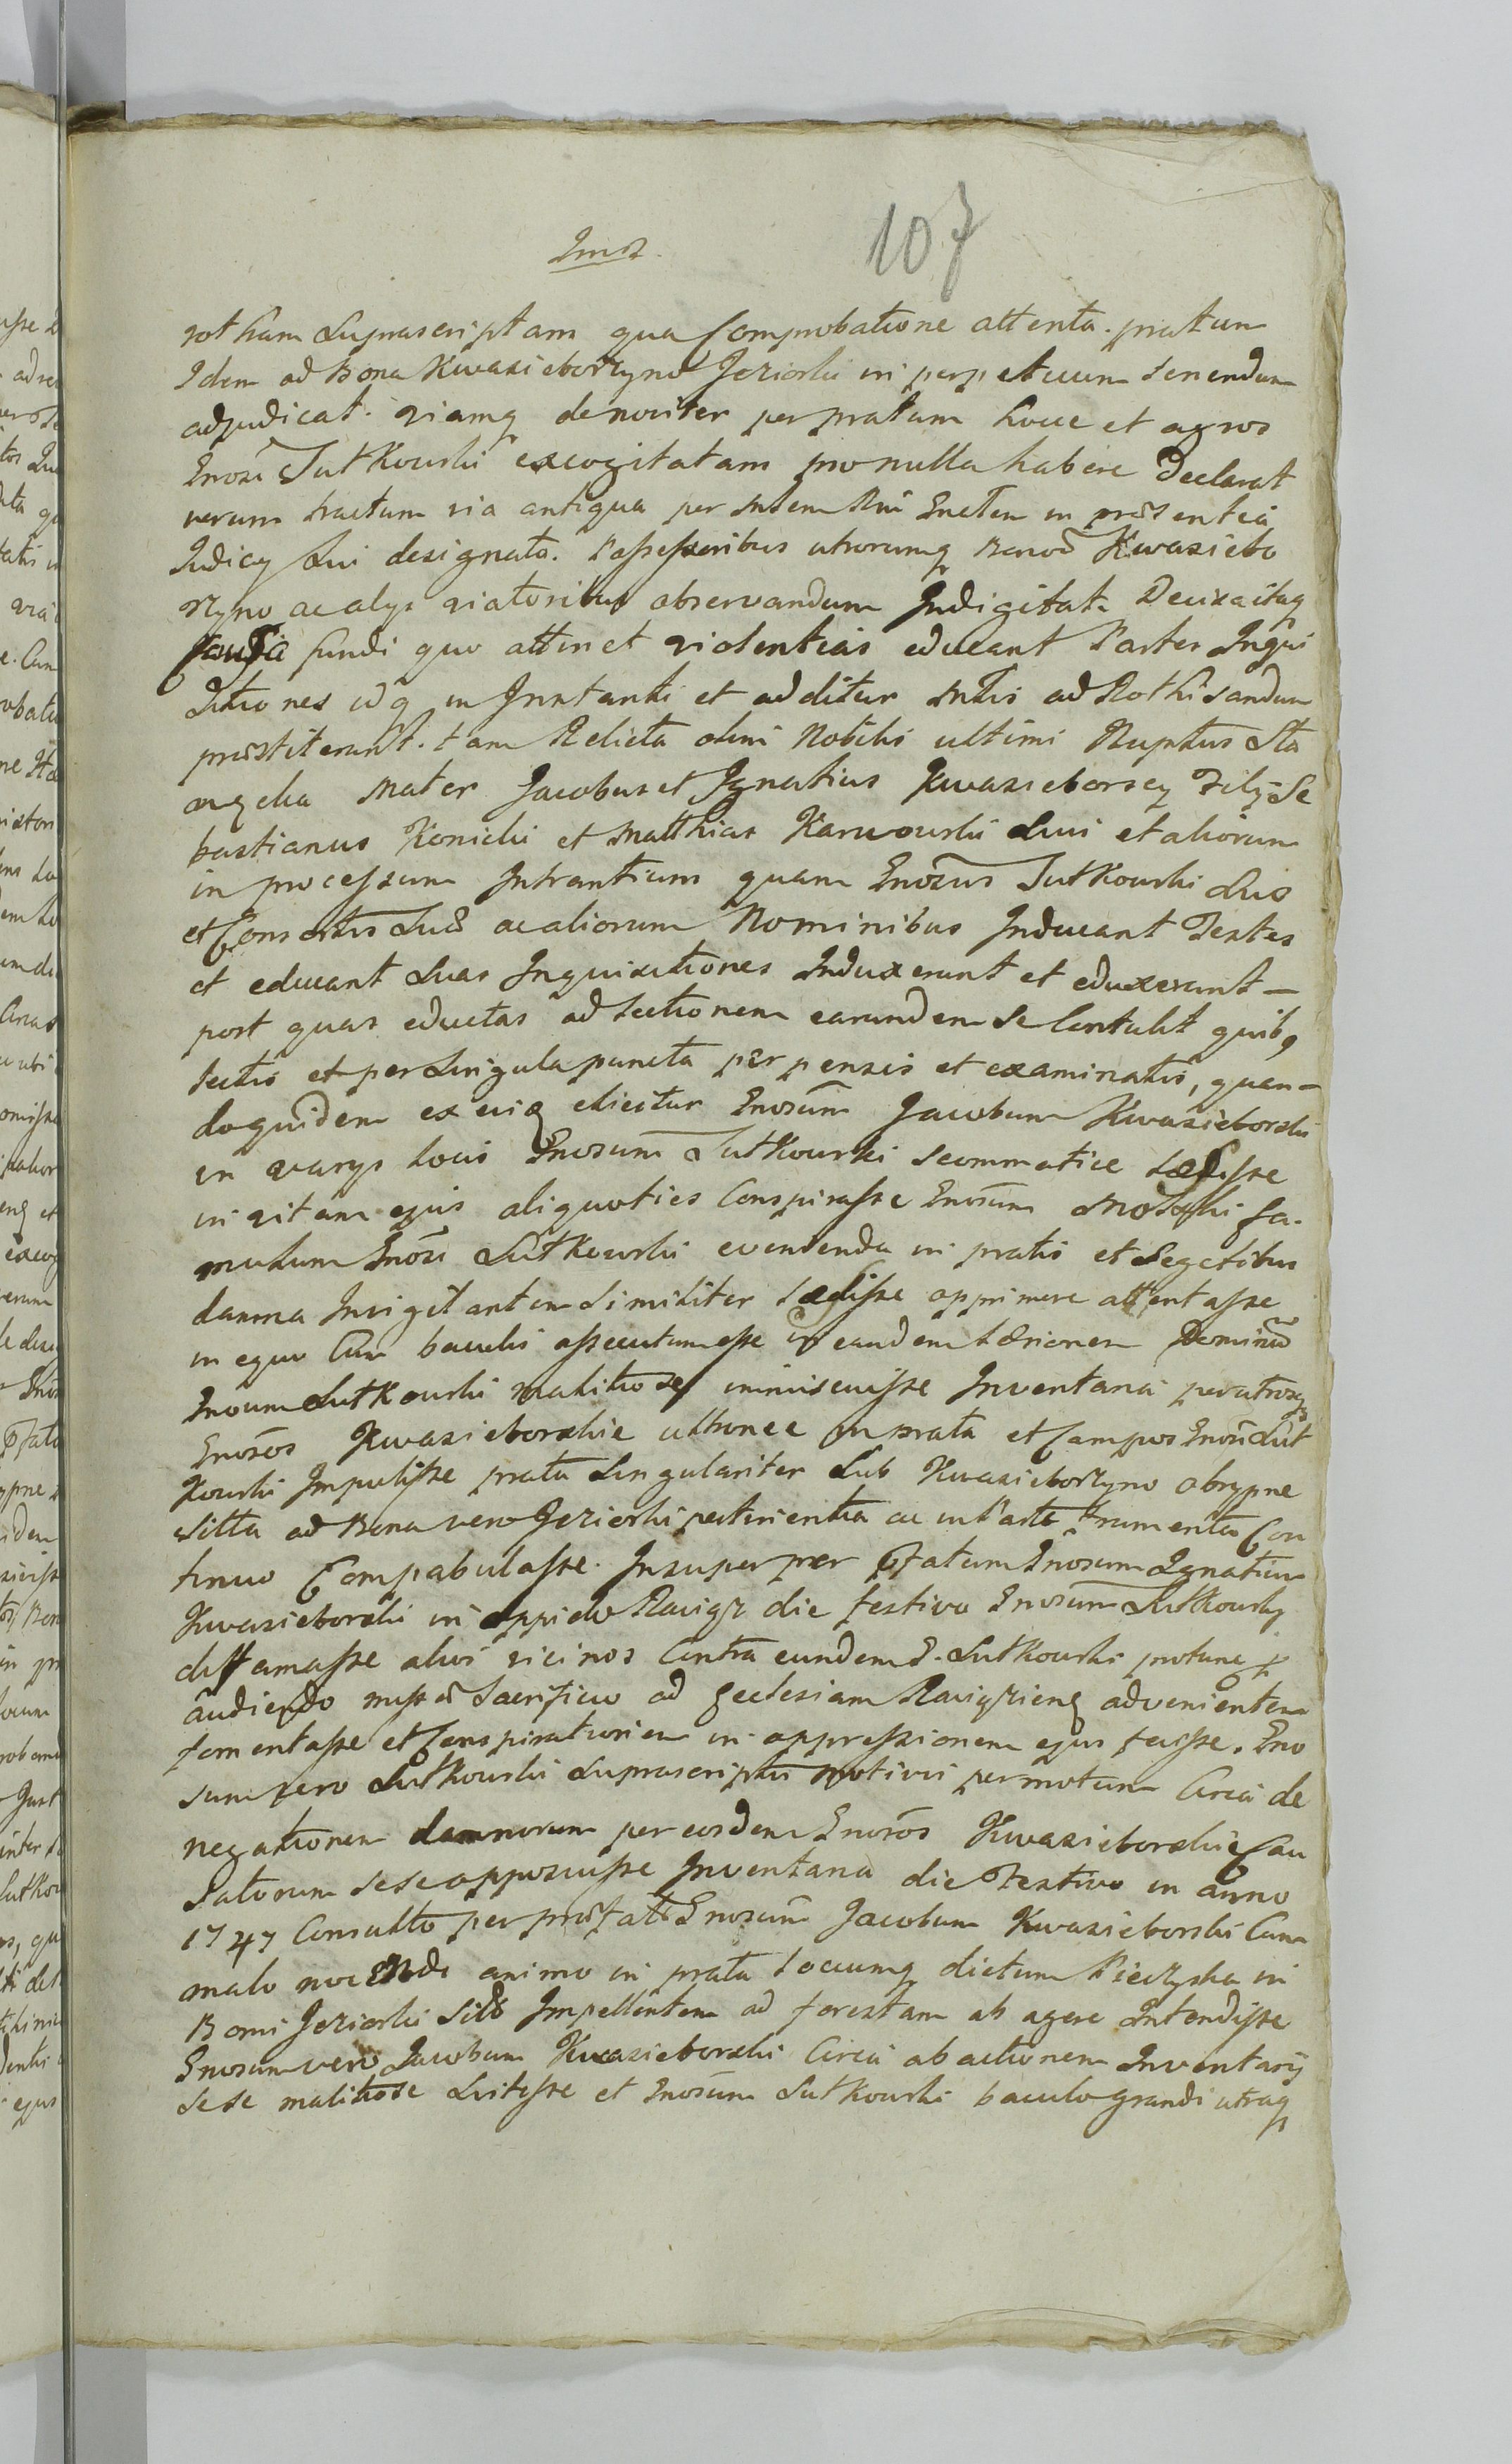 107
rotham suprascriptam qua Comprobatione attenta. pratum
Idem ad Bona Kwasieborzyno Jeziorki in perpetuum tenendum
adjudicat. viamq denoviter per pratum hocce et agros
Enosi Sutkowski excogitatam pro nulla habere declarat
verum tractum via antiqua per in præsentia
Judicij sui designato. Possessoribus utrorumq Bonor Kwasiebo
rzyno ac alys viatoribus observandum Indigitat. Decisa itaq
Causa fundi quo attinet violentias educant Partes Inqui
sitiones idq in Instanti et additur ad Rothisandum
præstiterunt. tam Relicta olim Nobilis ultimi Nuptus
angelia Mater Jacobus et Ignatius Kwasieborscy Filij Se
bastianus Konicki et Matthias Karwowski sui et aliorum
in processum Intrantium quam Enosus Sutkowski suo
et Consortis suæ ac aliorum Nominibus Inducant Testes
et educant suas Inquisitiones Induxerunt et eduxerunt —
post quas eductas ad lectionem earundem se Contulit quib,
lectis et per singula puncta perpensis et examinatis, quan-
doquidem ex eisq elicitur Enosum Jacobum Kwasieborski
in varys locis Enosum Sutkowski scommatice læsisse
in vitam ejus aliquoties Conspirasse Enosum fa-
mulum Enosi Sutkowski evertenda in pratis et segetibus
damna Invigilantem similiter læsisse opprimere attentasse
in equo Cum baculis assecutum esse in eundem læsionem
Enoum Sutkowski malitiose immiscuisse Inventaria per utrosq
Enosos Kwasieborskie ultronee in prata et Campos Enosi Sut
kowski Impulisse prata singulariter sub Kwasieborzyno
sitta ad Bona vero Jeziorki pertinentia ac in parte frumenta Con
tinuo Compabulasse. Insuper per Enosum Ignatium
Kwasieborski in oppido Raigr die festivo Enosum Sutkowsky
diffamasse alios vicinos Contra eundem E. Sutkowski protunc p
audiendo missæ Sacrificio ad Ecclesiam advenientem
fomentasse et Conspirationem in oppressionem ejus fecisse. Eno
sum vero Sutkowski suprascriptis motivis permotum Circa de
negationem damnorum per eosdem Enosos Kwasieborskie Cau
satorum sese opposuisse Inventaria die Festivo in anno
1747 Consulto per præfatum Enosum Jacobum Kwasieborski Cum
malo nocendi animo in prata locumq dictum in
Bonis Jeziorki sito Impellentem ad forestam ab agere Intendisse
Enosum vero Jacobum Kwasieborski Circa abactionem Inventarij
sese malitiose et Enosum Sutkowski baculo grandi utraq